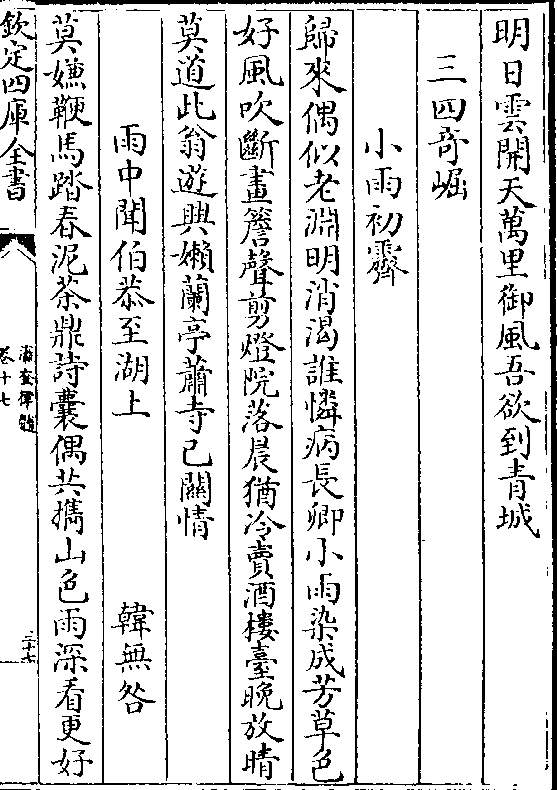 明日雲開天萬里御風吾欲到青城
三四奇崛
小雨初霽
歸來偶似老淵明消渴誰憐病長卿小雨染成芳草色
好風吹斷畫簷聲剪燈院落晨猶冷賣酒樓臺晚放晴
莫道此翁遊興嬾蘭亭蕭寺已關情
雨中聞伯恭至湖上　韓無咎
莫嫌鞭馬踏春泥茶鼎詩囊偶共攜山色雨深看更好
欽定四庫全書
瀛奎律髓
卷十七
三十七